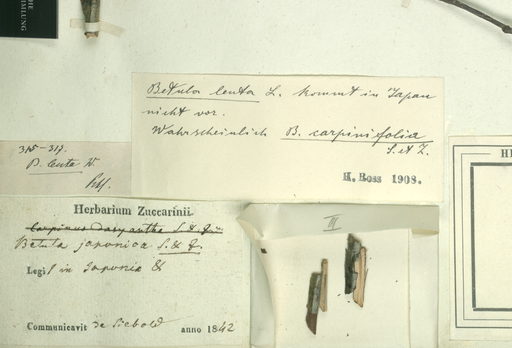 MMLUNG
Betula lenta L. kommt in Japan
nicht vor.
Wahrscheinlich B. carpinifolia
S. et Z.
H. Ross 1908.
315-317.
B. lenta W.
Herbarium Zuccarinii.
Carpinus Dasyantha S. & Z.
Betula japonica S. & Z.
Legit in Japonia
Communicavit de Siebold anno 1842
III